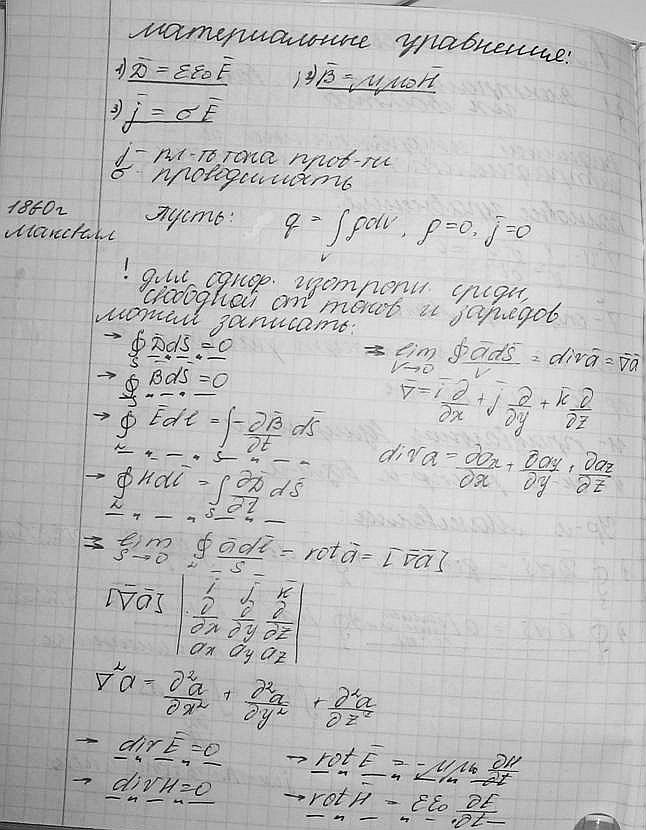 материальные уравнения:
1) D̄ = εε₀Ē ; 2) B̄ = μμ₀H̄
3) j̄ = σĒ
j – пл-ть тока пров-ти
σ – проводимость
1860г
Максвелл
Пусть: q = ∫_V ρdv, ρ=0, j̄=0
! для однор. изотропн. среды,
свободной от токов и зарядов
можем записать:
→ ∮_S D̄dS̄ = 0
→ ∮_S B̄dS̄ = 0
→ ∮_L Ēdl̄ = ∫_S -∂B̄/∂t dS̄
→ ∮_L H̄dl̄ = ∫_S ∂D̄/∂t dS̄
⇒ lim_{V→0} ∮ādS̄/V = divā = ∇̄ā
∇̄ = ī ∂/∂x + j̄ ∂/∂y + k̄ ∂/∂z
div a = ∂ax/∂x + ∂ay/∂y + ∂az/∂z
⇒ lim_{S→0} ∮_L ādl̄/S = rotā = [∇̄ā]
[∇̄ā] | ī j̄ k̄
∂/∂x ∂/∂y ∂/∂z
ax ay az |
∇²a = ∂²a/∂x² + ∂²a/∂y² + ∂²a/∂z²
→ div Ē = 0 → rot Ē = -μμ₀ ∂H/∂t
→ div H = 0 → rot H = εε₀ ∂E/∂t